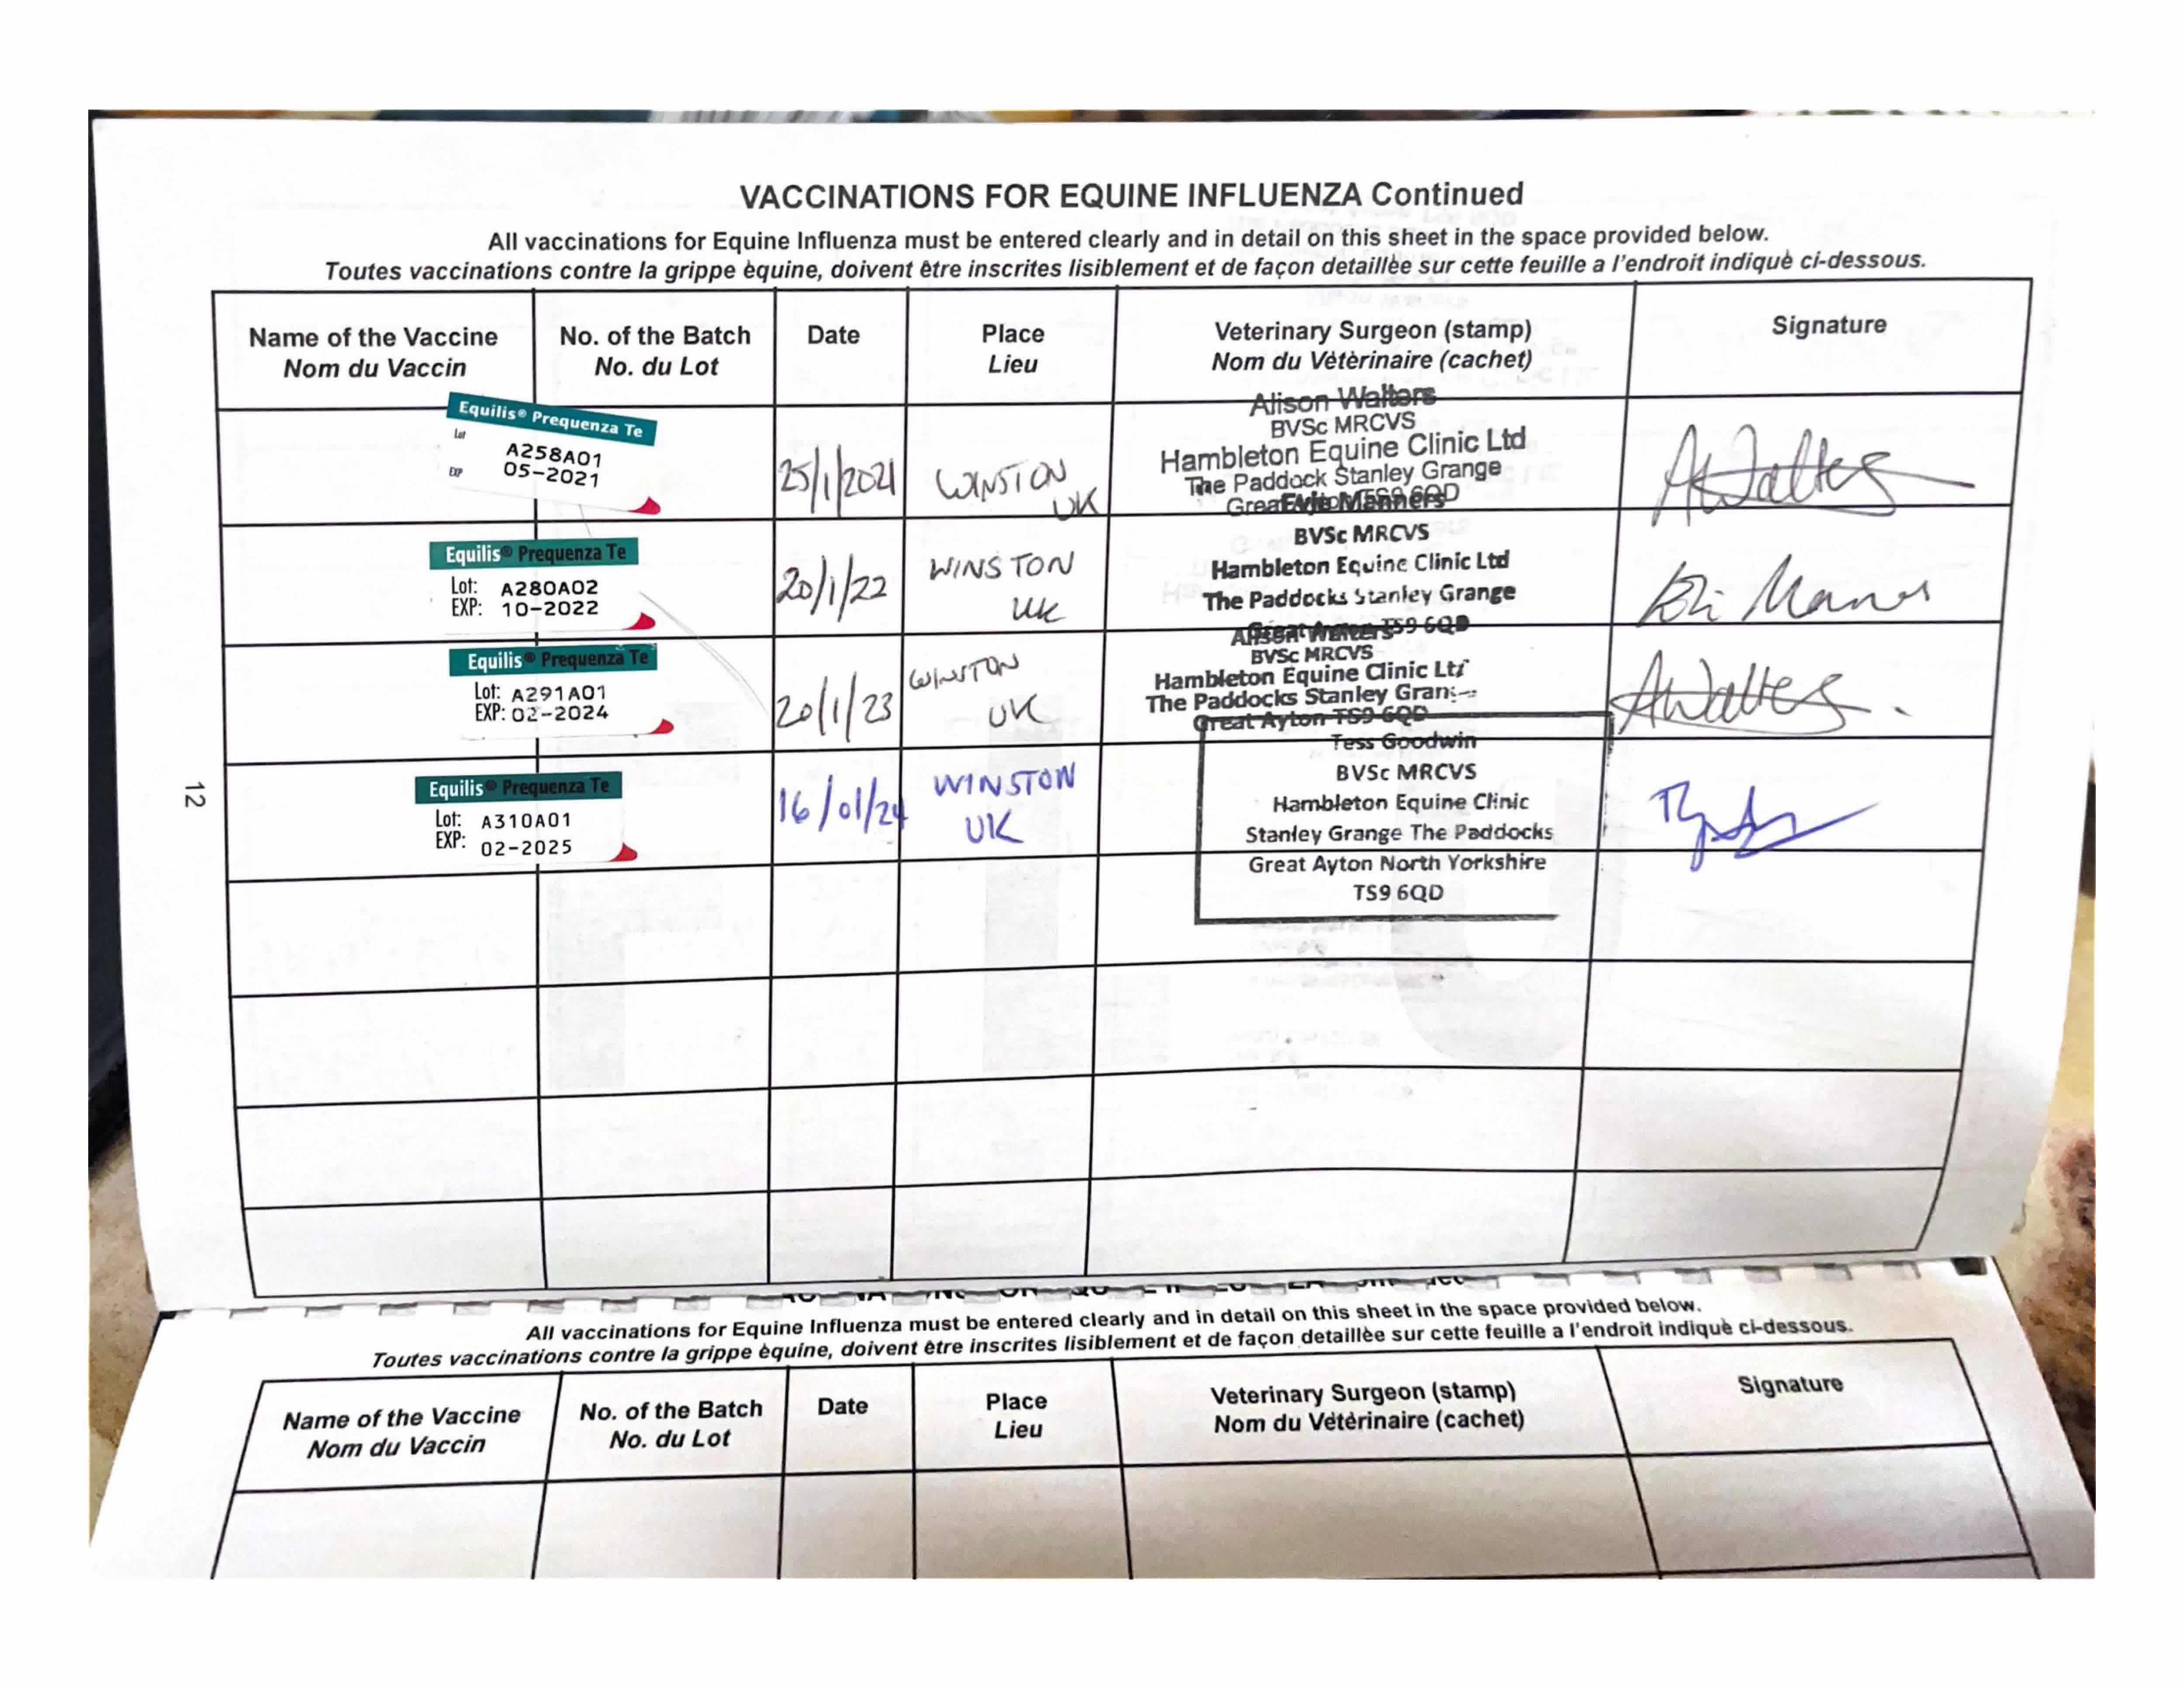 VACCINATIONS FOR EQUINE INFLUENZA Continued
All vaccinations for Equine Influenza must be entered clearly and in detail on this sheet in the space provided below.
Toutes vaccinations contre la grippe èquine, doivent être inscrites lisiblement et de façon detaillèe sur cette feuille a l'endroit indiquè ci-dessous.
Name of the Vaccine
Nom du Vaccin
No. of the Batch
No. du Lot
Date
Place
Lieu
Veterinary Surgeon (stamp)
Nom du Vètèrinaire (cachet)
Signature
Equilis® Prequenza Te
Lot A258A01
EXP 05-2021
25/1/2021
WINSTON
UK
Alison Walters
BVSc MRCVS
Hambleton Equine Clinic Ltd
The Paddock Stanley Grange
Great Ayton TS9 6QD
AWalters
Equilis® Prequenza Te
Lot: A280A02
EXP: 10-2022
20/1/22
WINSTON
UK
Evie Manners
BVSc MRCVS
Hambleton Equine Clinic Ltd
The Paddocks Stanley Grange
Great Ayton TS9 6QD
Equilis® Prequenza Te
Lot: A291A01
EXP: 02-2024
20/1/23
WINSTON
UK
Alison Walters
BVSc MRCVS
Hambleton Equine Clinic Ltd
The Paddocks Stanley Grange
Great Ayton TS9 6QD
AWalters.
Equilis® Prequenza Te
Lot: A310A01
EXP: 02-2025
16/01/24
WINSTON
UK
Tess Goodwin
BVSc MRCVS
Hambleton Equine Clinic
Stanley Grange The Paddocks
Great Ayton North Yorkshire
TS9 6QD
12
All vaccinations for Equine Influenza must be entered clearly and in detail on this sheet in the space provided below.
Toutes vaccinations contre la grippe èquine, doivent être inscrites lisiblement et de façon detaillèe sur cette feuille a l'endroit indiquè ci-dessous.
Name of the Vaccine
Nom du Vaccin
No. of the Batch
No. du Lot
Date
Place
Lieu
Veterinary Surgeon (stamp)
Nom du Vètèrinaire (cachet)
Signature